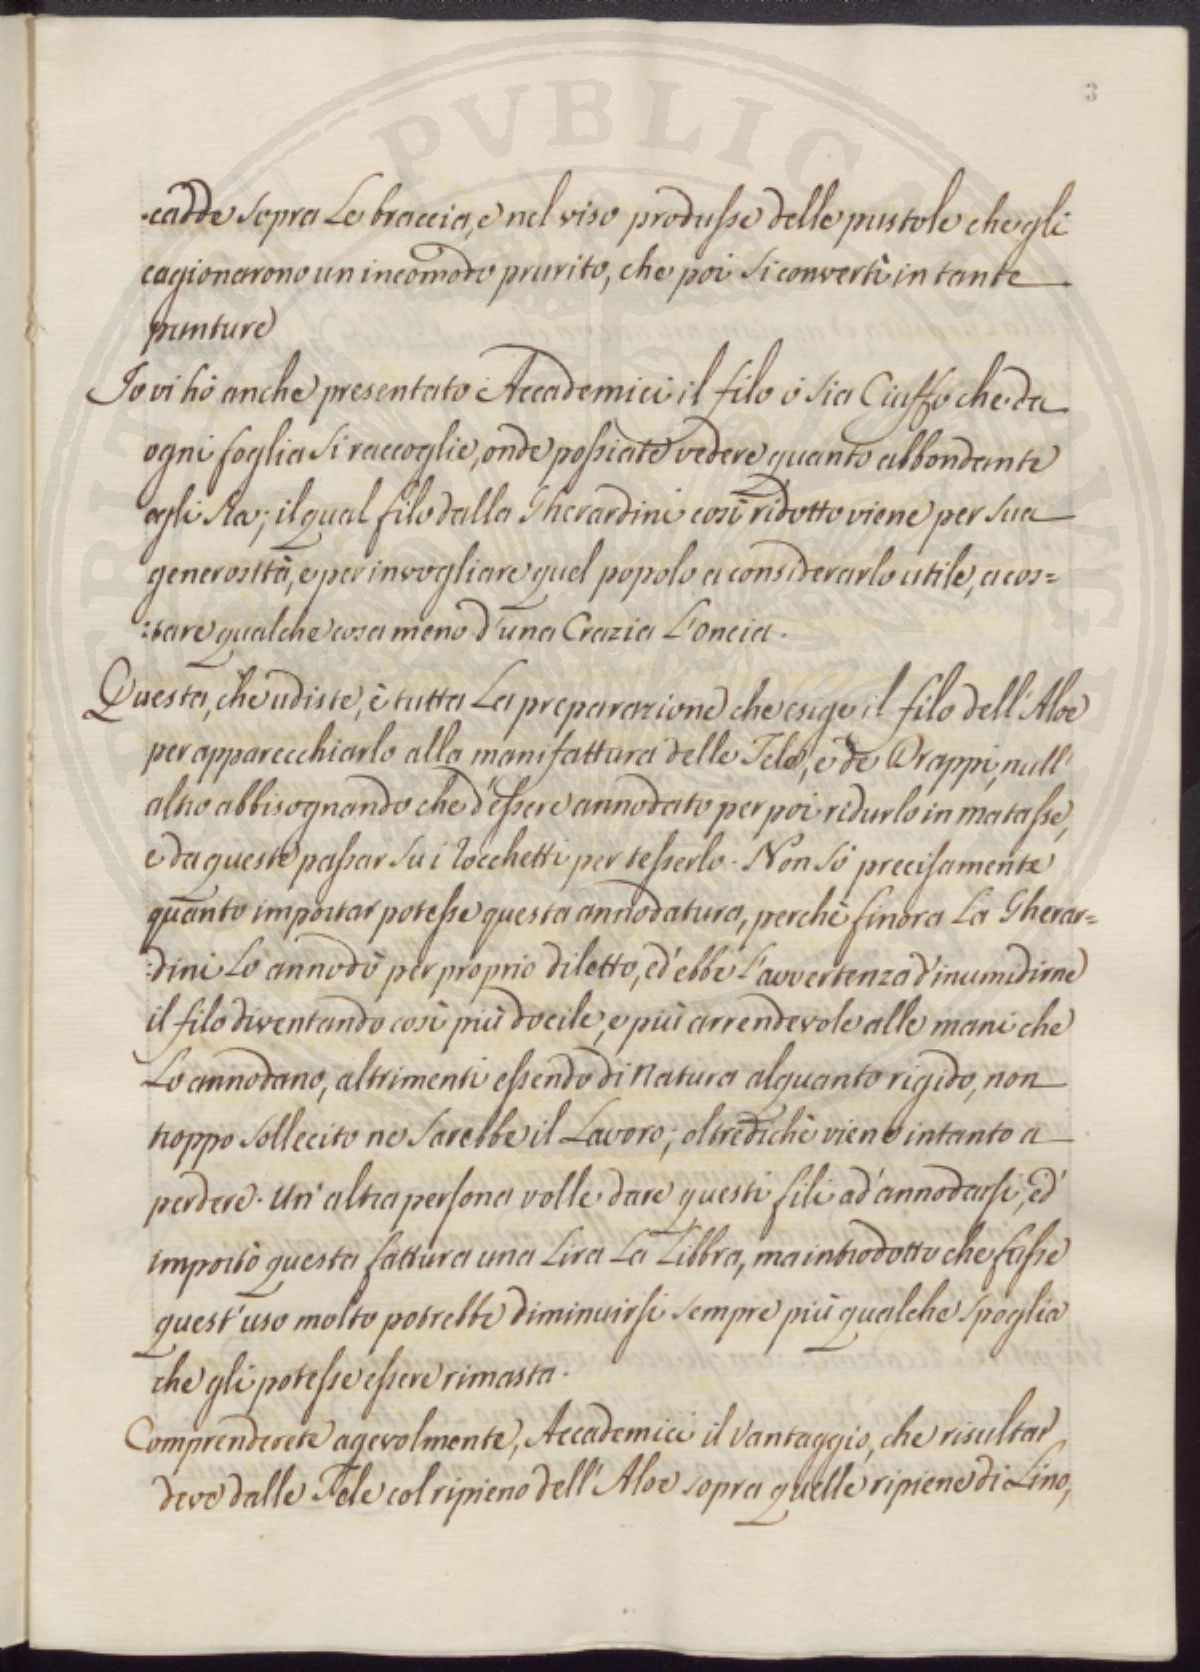 3
cadde sopra Le braccia, e nel viso produsse delle pustole che gli
cagionarono un incomodo prurito, che poi si convertì in tante
punture
Io vi hò anche presentato Accademici il filo ò sia Ciuffo che da
ogni foglia si raccoglie, onde possiate vedere quanto abbondante
egli sia; il qual filo dalla Gherardini così ridotto viene per sua
generosità, e per invogliare quel popolo a considerarlo utile, a cos=
:tare qualche cosa meno d'una Crazia L'oncia.
Questa, che udiste, è tutta La preparazione che esige il filo dell'Aloe
per apparecchiarlo alla manifattura delle Tele, e de Drappi, null'
altro abbisognando che d'essere annodato per poi ridurlo in matasse,
e da queste passar su i rocchetti per tesserlo. Non sò precisamente
quanto importar potesse questa annodatura, perchè finora La Gherar=
:dini Lo annodò per proprio diletto, ed' ebbe L'avvertenza d'inumidirne
il filo diventando così più docile, e più arrendevole alle mani che
Lo annodano, altrimenti essendo di Natura alquanto rigido, non
troppo sollecito ne sarebbe il Lavoro; oltredichè viene intanto a
perdere. Un' altra persona volle dare questi fili ad' annodarsi, ed'
importò questa fattura una Lira La Libbra, ma introdotto che fosse
quest'uso molto potrebbe diminuirsi sempre più qualche spoglia
che gli potesse essere rimasta.
Comprenderete agevolmente, Accademici il vantaggio, che risultar
deve dalle Tele col ripieno dell'Aloe sopra quelle ripiene di Lino,